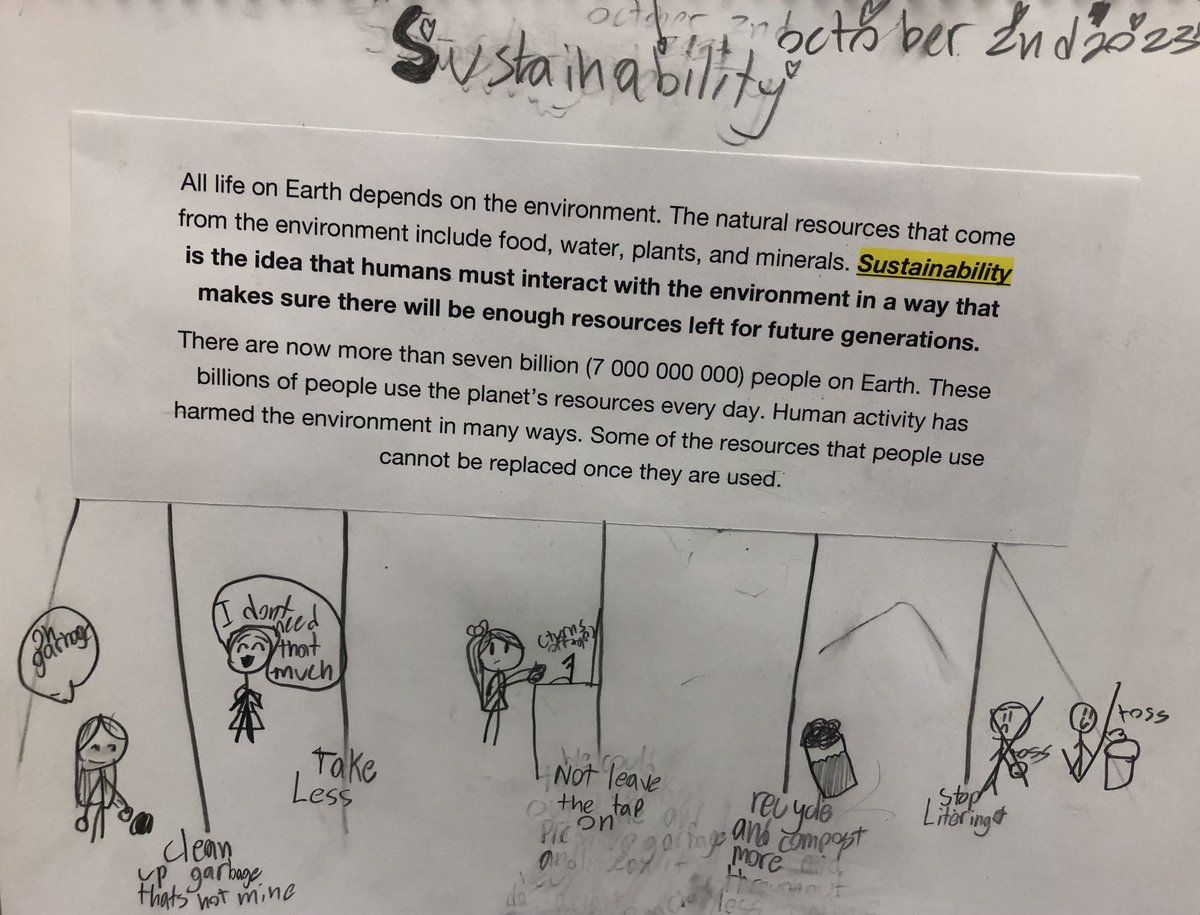 october 2nd
Sustainability
october 2nd 2023
All life on Earth depends on the environment. The natural resources that come
from the environment include food, water, plants, and minerals. Sustainability
is the idea that humans must interact with the environment in a way that
makes sure there will be enough resources left for future generations.
There are now more than seven billion (7 000 000 000) people on Earth. These
billions of people use the planet's resources every day. Human activity has
harmed the environment in many ways. Some of the resources that people use
cannot be replaced once they are used.
oh
garbage
clean
up garbage
thats not mine
I dont
need
that
much
Take
Less
Not leave
the tap
on
recycle
and compost
more
Stop
Litering
toss